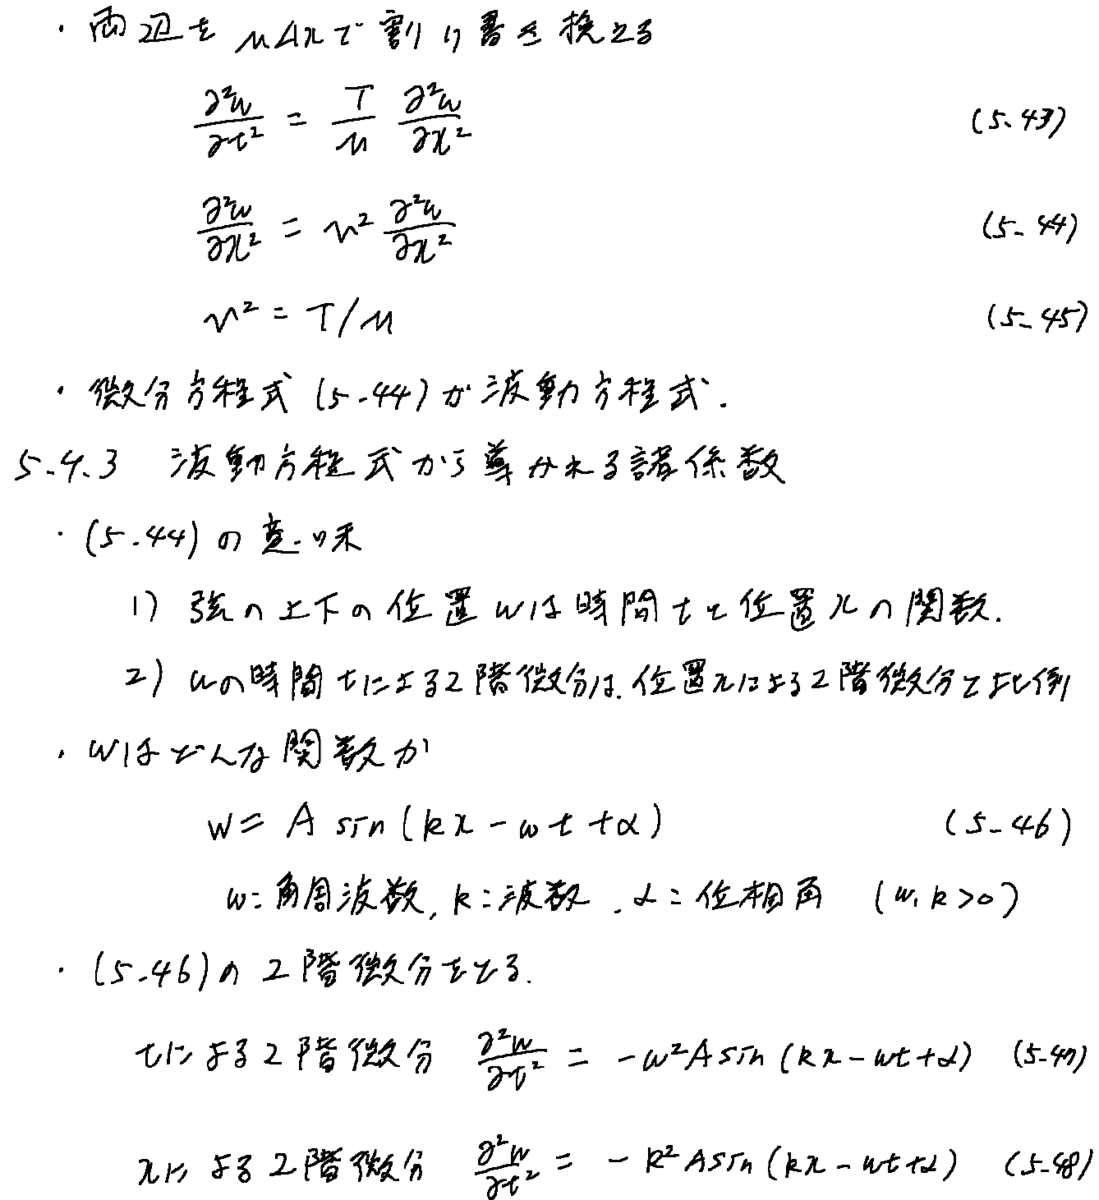 ・両辺をμΔxで割り書き換える
∂²w/∂t² = T/μ ∂²w/∂x² (5.43)
∂²w/∂x² = v² ∂²w/∂x² (5.44)
v² = T/μ (5.45)
・微分方程式(5.44)が波動方程式.
5.4.3 波動方程式から導かれる諸係数
・(5.44)の意味
1) 弦の上下の位置wは時間tと位置xの関数.
2) wの時間tによる2階微分は、位置xによる2階微分と比例
・wはどんな関数か
w = A sin(kx - ωt + α) (5.46)
ω: 角周波数, k: 波数, α: 位相角 (ω, k > 0)
・(5.46)の2階微分をとる.
tによる2階微分 ∂²w/∂t² = -ω²A sin(kx - ωt + α) (5.47)
xによる2階微分 ∂²w/∂t² = -k²A sin(kx - ωt + α) (5.48)